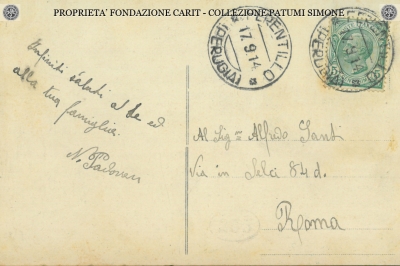 PROPRIETA' FONDAZIONE CARIT - COLLEZIONE PATUMI SIMONE
FERENTILLO
17.9.14
(PERUGIA)
FERENTILLO
17.9.14
(PERUGIA)
Infiniti saluti a te ed
alla tua famiglia
N.
Al Sig. Alfredo Santi
Via in Selci 84 d.
Roma